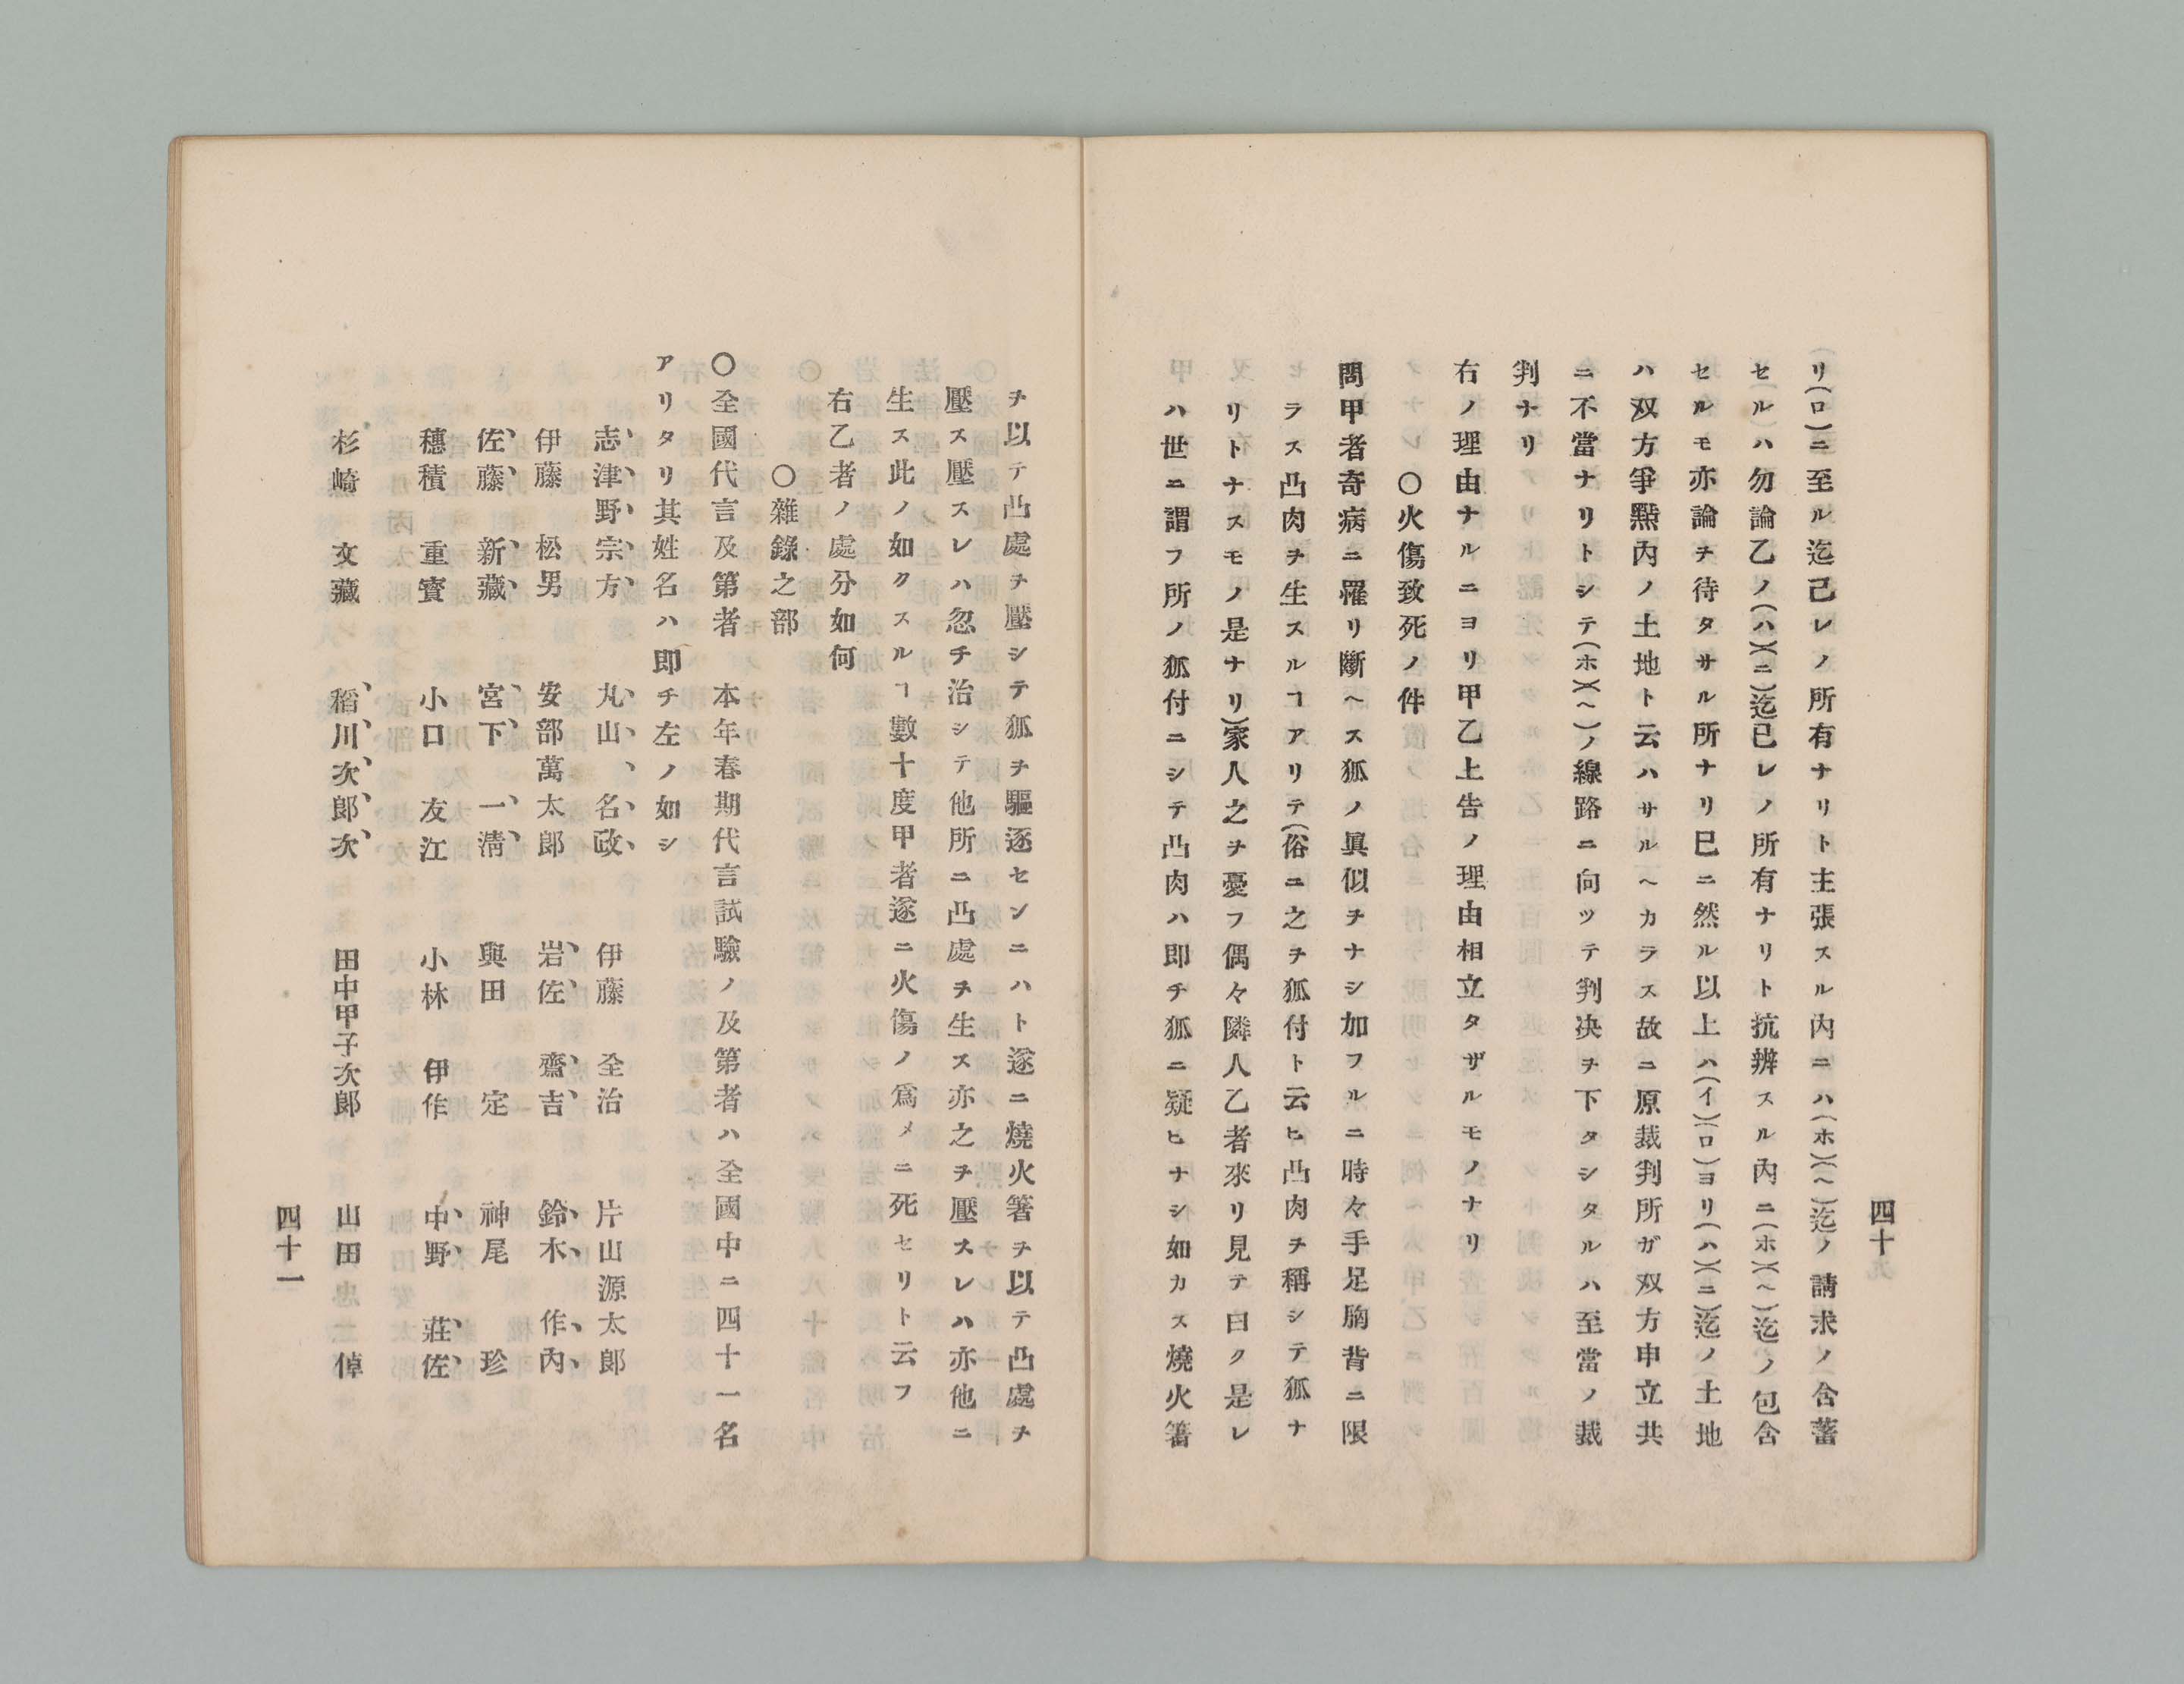 四十
リ(ロ)ニ至ル迄己レノ所有ナリト主張スル内ニハ(ホ)(ヘ)迄ノ請求ノ含蓄
セルハ勿論乙ノ(ハ)(ニ)迄已レノ所有ナリト抗辨スル內ニ(ホ)(ヘ)迄ノ包含
セルモ亦論ヲ待タサル所ナリ巳ニ然ル以上ハ(イ)(ロ)ヨリ(ハ)(ニ)迄ノ土地
ハ双方爭點內ノ土地ト云ハサルヘカラス故ニ原裁判所ガ双方申立共
ニ不當ナリトシテ(ホ)(ヘ)ノ線路ニ向ツテ判决ヲ下タシタルハ至當ノ裁
判ナリ
右ノ理由ナルニヨリ甲乙上告ノ理由相立タザルモノナリ
○火傷致死ノ件
問甲者奇病ニ罹リ斷ヘス狐ノ眞似ヲナシ加フルニ時々手足胸背ニ限
ラス凸肉ヲ生スルヿアリテ(俗ニ之ヲ狐付ト云ヒ凸肉ヲ稱シテ狐ナ
リトナスモノ是ナリ)家人之ヲ憂フ偶々隣人乙者來リ見テ曰ク是レ
ハ世ニ謂フ所ノ狐付ニシテ凸肉ハ即チ狐ニ疑ヒナシ如カス燒火箸
ヲ以テ凸處ヲ壓シテ狐ヲ驅逐センニハト遂ニ燒火箸ヲ以テ凸處ヲ
壓ス壓スレハ忽チ治シテ他所ニ凸處ヲ生ス亦之ヲ壓スレハ亦他ニ
生ス此ノ如クスルヿ數十度甲者遂ニ火傷ノ爲メニ死セリト云フ
右乙者ノ處分如何
○雜錄之部
○全國代言及第者 本年春期代言試驗ノ及第者ハ全國中ニ四十一名
アリタリ其姓名ハ即チ左ノ如シ
志、津、野、宗、方、 丸、山、 名、政、 伊藤 全治 片山源太郎
伊藤 松男 安部萬太郎 岩、佐、 齋、吉、 鈴、木、 作、內、
佐、藤、 新、藏、 宮、下、 一、淸、 與田 定 神尾 珍
穗積 重實 小口 友江 小林 伊作 中、野、 莊、佐、
杉崎 文藏 稻、川、次、郎、次、 田中甲子次郎 山田 倬
四十一